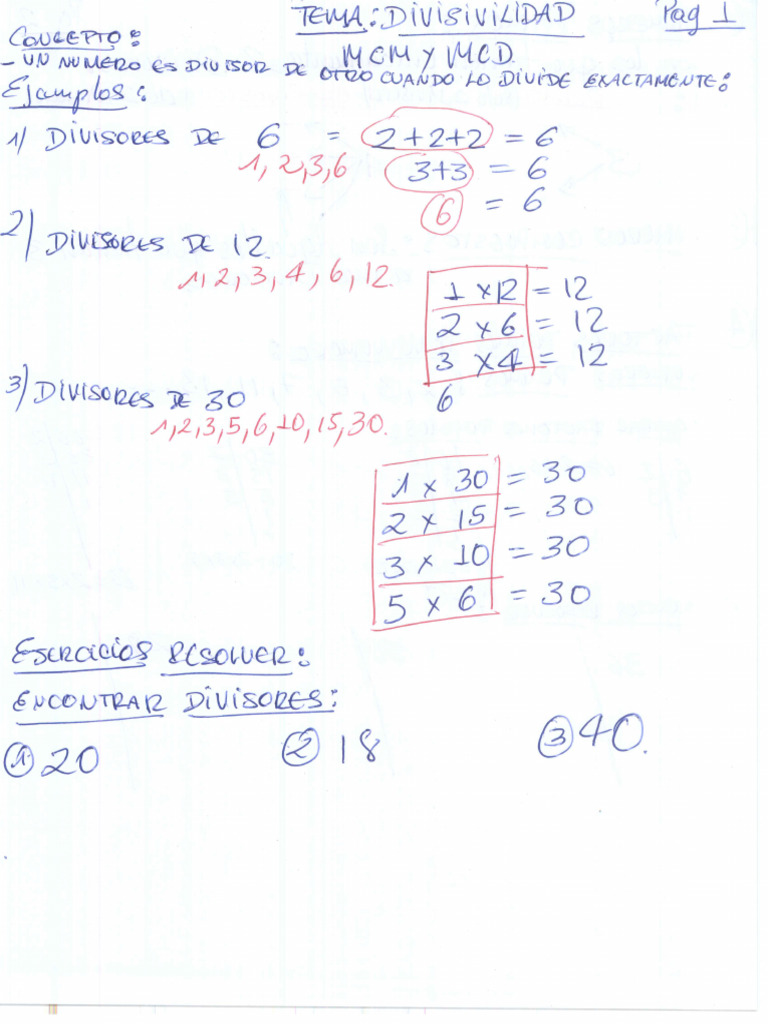 TEMA: DIVISIVILIDAD Pag 1
MCM Y MCD
CONCEPTO:
- UN NUMERO ES DIVISOR DE OTRO CUANDO LO DIVIDE EXACTAMENTE:
Ejamplos:
1) DIVISORES DE 6 = 2+2+2 = 6
1, 2, 3, 6 3+3 = 6
6 = 6
2) DIVISORES DE 12
1, 2, 3, 4, 6, 12.
1 x 12 = 12
2 x 6 = 12
3 x 4 = 12
6
3) DIVISORES DE 30
1, 2, 3, 5, 6, 10, 15, 30.
1 x 30 = 30
2 x 15 = 30
3 x 10 = 30
5 x 6 = 30
ESERCICIOS RESOLVER:
ENCONTRAR DIVISORES:
① 20 ② 18 ③ 40.